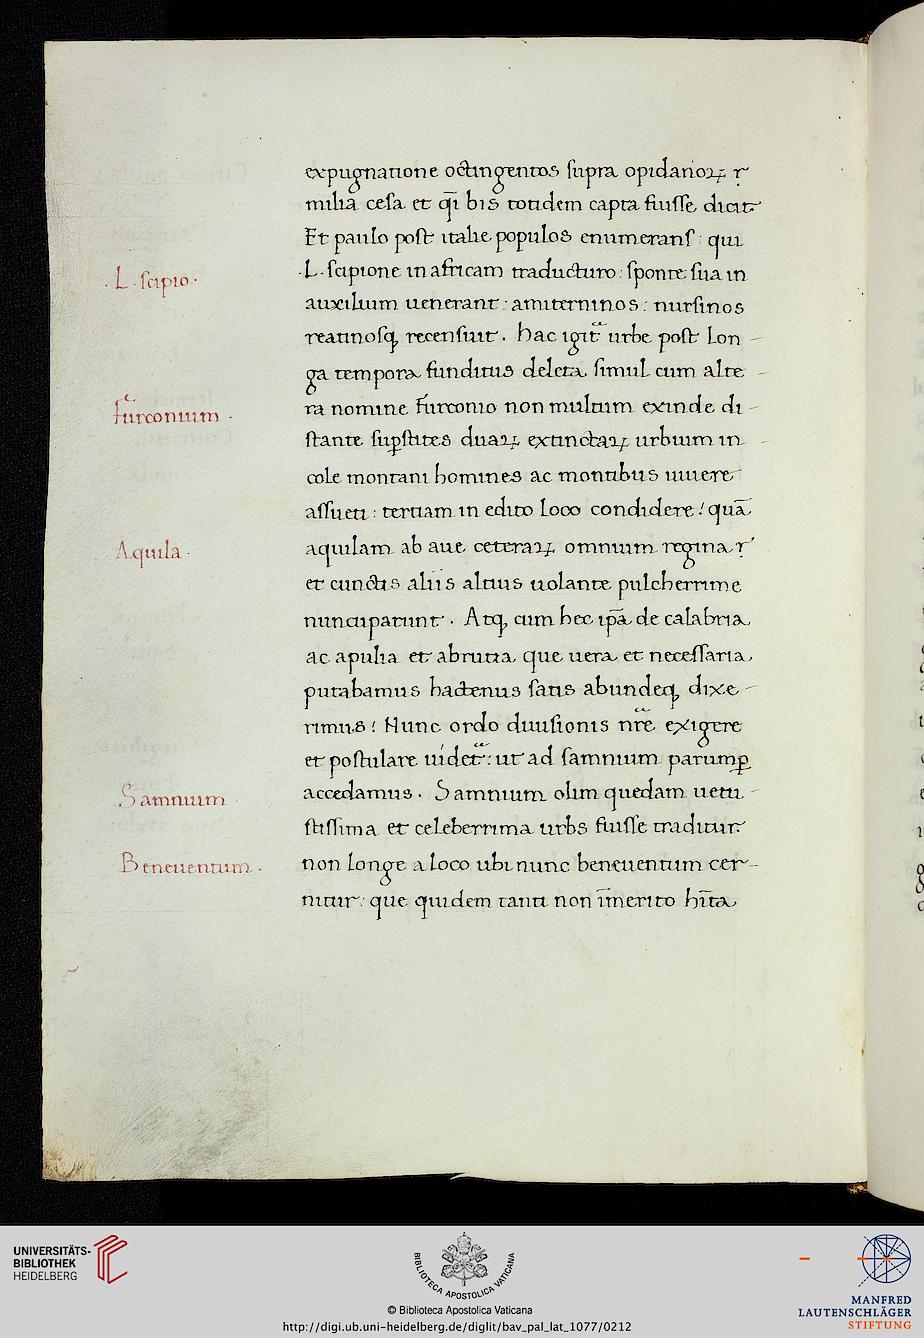 expugnatione octingentos supra opidanoꝝ r̨
milia cesa et qͣi bis totidem capta fuisse dicit
Et paulo post italie populos enumerans: qui
·L· scipione in africam traducturo: sponte sua in
·L· scipio·
auxilium uenerant: amiterninos: nursinos
reatinosqꝫ recensuit. hac igit᷑ urbe post lon-
ga tempora funditus deleta simul cum alte-
ra nomine furconio non multum exinde di-
furconium·
stante suꝑstites duaꝝ extinctaꝝ urbium in-
cole montani homines ac montibus uiuere
assueti: tertiam in edito loco condidere! quā
aquilam ab aue ceteraꝝ omnium regina r̨
Aquila·
et cunctis aliis altius uolante pulcherrime
nuncuparunt. Atqꝫ cum hec ip̄a de calabria
ac apulia et abrutia que uera et necessaria
putabamus hactenus satis abundeqꝫ dixe-
rimus! Nunc ordo diuisionis nr̄e exigere
et postulare uidet᷑: ut ad samnium parumꝑ
accedamus. Samnium olim quedam uetu-
Samnium·
stissima et celeberrima urbs fuisse traditur
non longe a loco ubi nunc beneuentum cer-
Beneuentum·
nitur: que quidem tanti non īmerito hīta
UNIVERSITÄTS-
BIBLIOTHEK
HEIDELBERG
BIBLIOTECA APOSTOLICA VATICANA
© Biblioteca Apostolica Vaticana
http://digi.ub.uni-heidelberg.de/diglit/bav_pal_lat_1077/0212
MANFRED
LAUTENSCHLÄGER
STIFTUNG